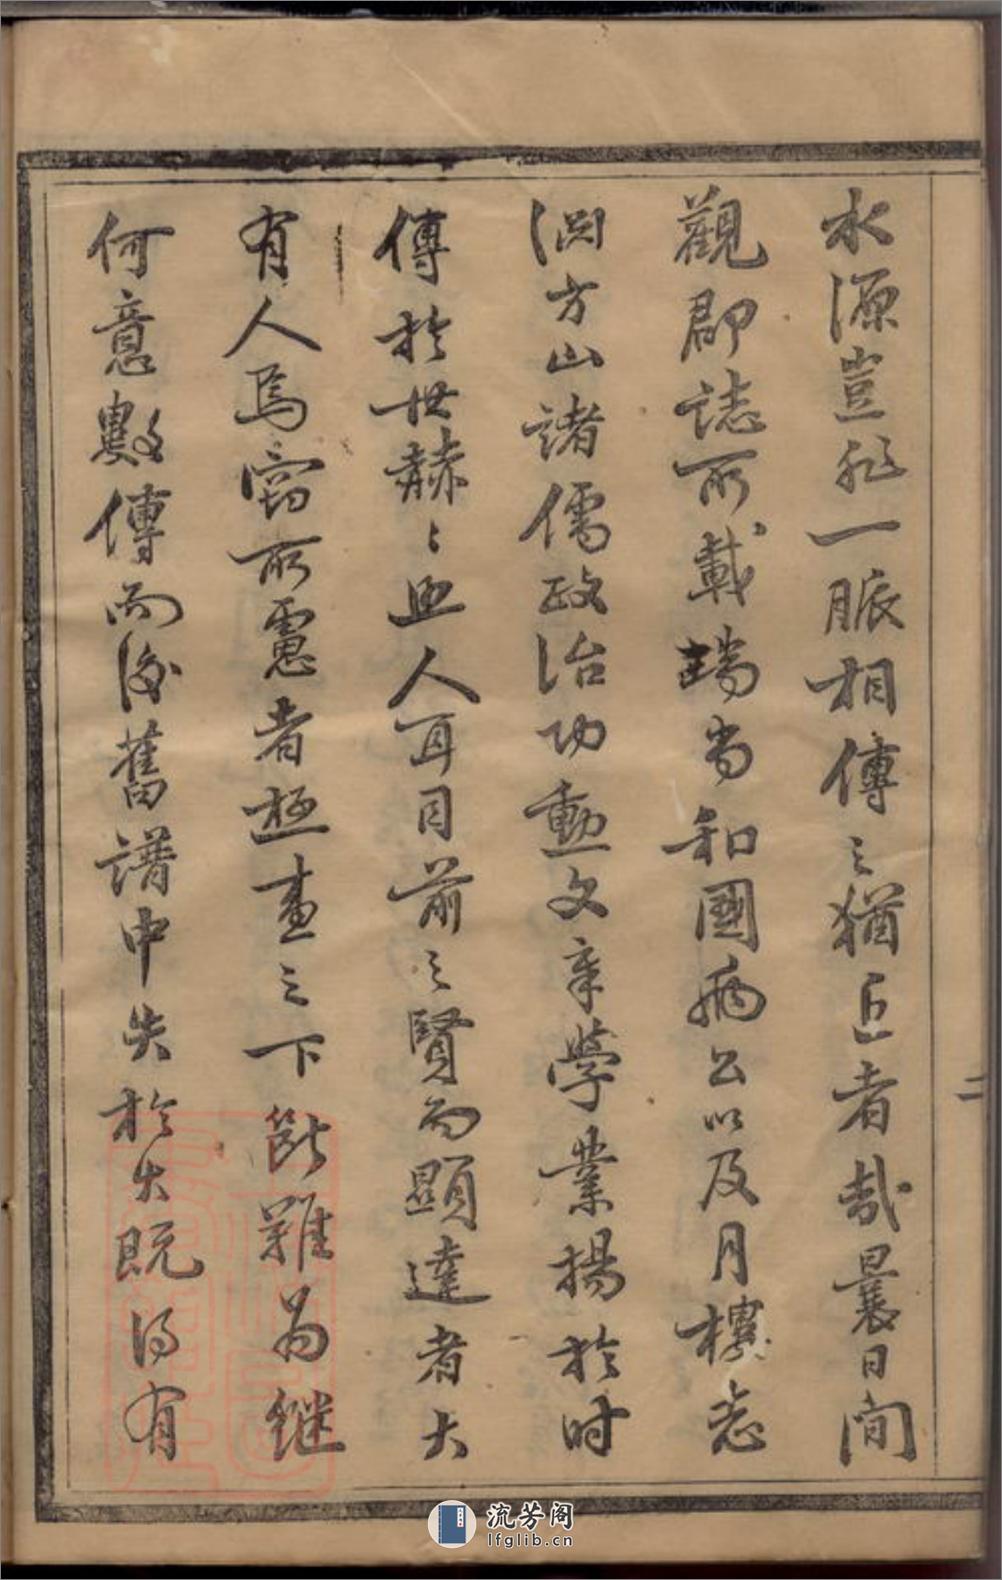 水源豈非一脈相傳之猶近者哉曩日間
觀郡誌所載端尚和國兩公以及月樓志
淵方山諸儒政治功勳文章學業揚於时
傳於世赫〻興人耳目前之賢而顯達者大
有人焉竊所慮者極盡之下難為继
何意數傳而後舊譜中失於火既得有
二
流芳阁
lfglib.cn